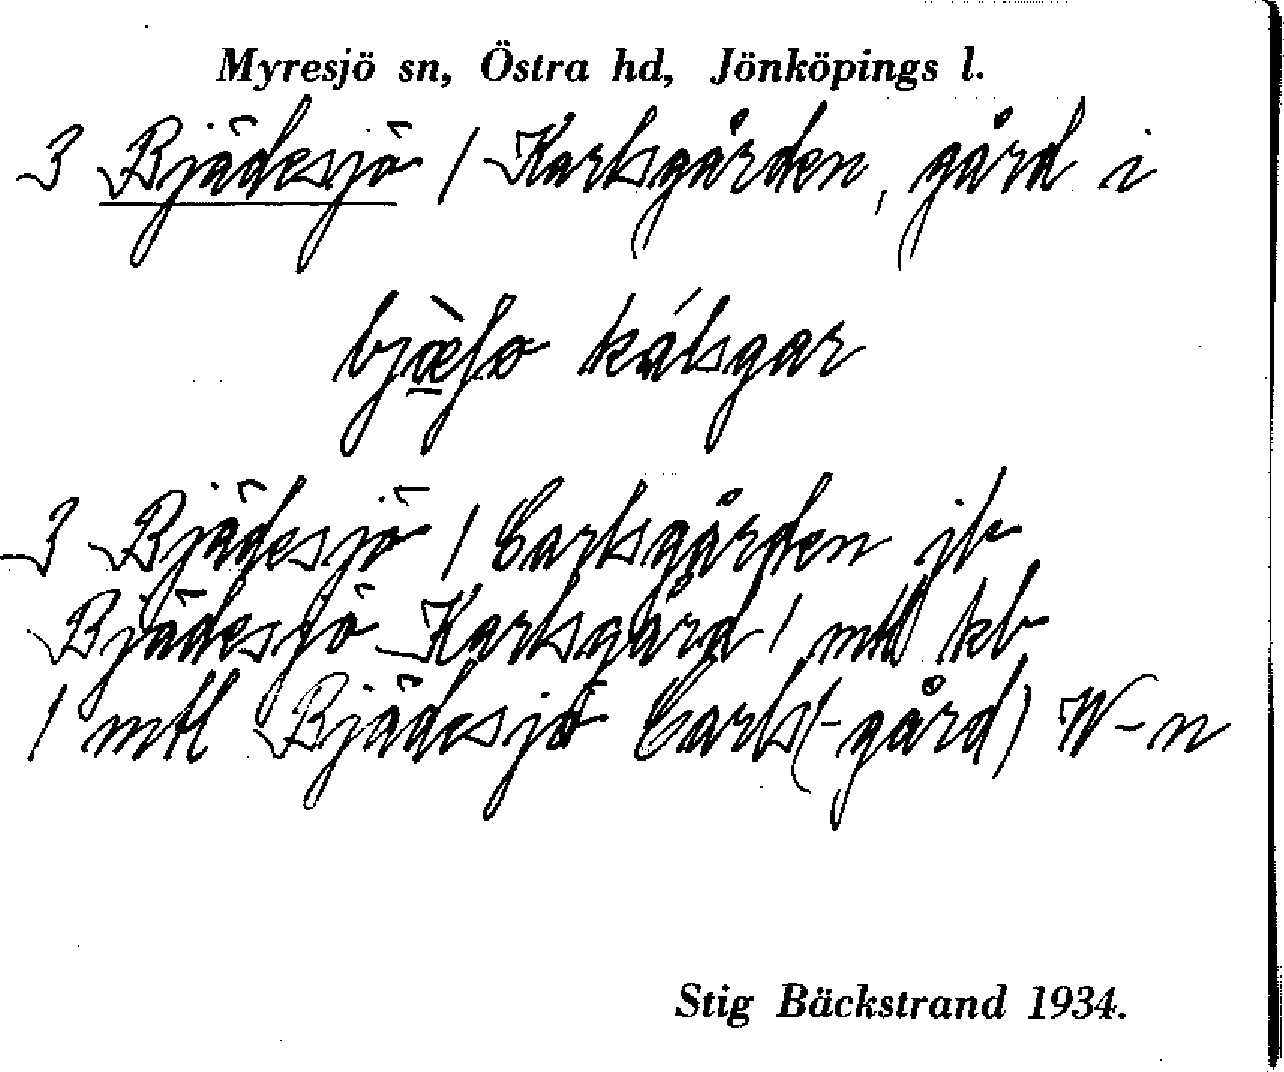 Myresjö sn, Östra hd, Jönköpings l.
3 Bjädesjö / Karlsgården, gård i
bjæ̀ʃo kálsgar
3 Bjädesjö / Carlsgården jb
Bjädesjö Karlsgård 1 mtl kb
1 mtl Bjädesjö Carls(-gård) W-n
Stig Bäckstrand 1934.